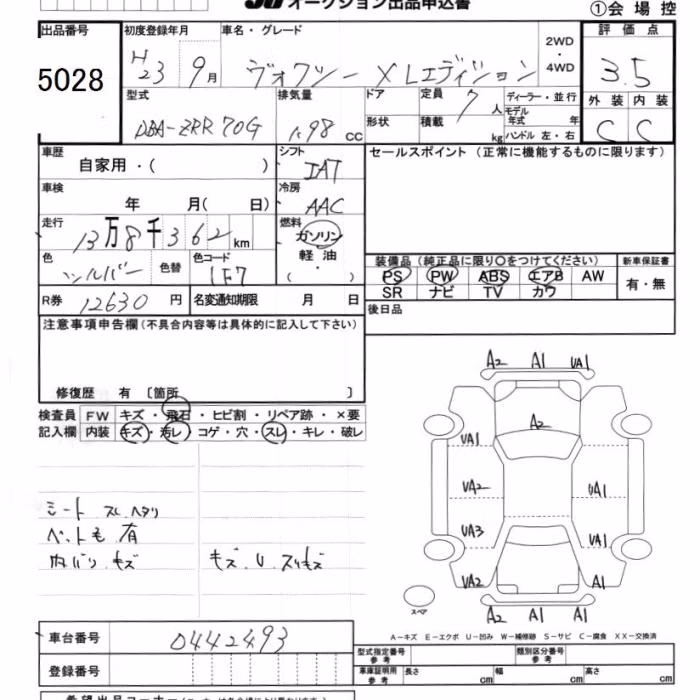 オークション出品申込書
①会場控
出品番号 5028
初度登録年月 H23 9月
車名・グレード ヴォクシー XLエディション
2WD・4WD
評価点 3.5
外装 C 内装 C
型式 DBA-ZRR70G
排気量 1.98 cc
ドア 形状
定員 7人
積載 kg
ディーラー・並行
モデル年式 年
ハンドル 左・右
車歴 自家用・( )
シフト IAT
セールスポイント (正常に機能するものに限ります)
車検 年 月( 日)
冷房 AAC
走行 13万8千362km
燃料 ガソリン 軽油 ・ ( )
色 シルバー 色替
色コード 1F7
装備品 (純正品に限り○をつけてください)
新車保証書
PS PW ABS エアB AW
SR ナビ TV カワ
有・無
R券 12630円
名変通知期限 月 日
後日品
注意事項申告欄 (不具合内容等は具体的に記入して下さい)
修復歴 有 〔箇所 〕
検査員 FW キズ・飛石・ヒビ割・リペア跡・×要
記入欄 内装 キズ・汚レ・コゲ・穴・スレ・キレ・破レ
シート スレ ヘタリ
ペット毛 有
内バリ キズ キズ、U、スリキズ
A2 A1 UA1
A2
UA1
UA2 UA1
UA3 UA1
UA2 A1
スペア
A2 A1 A1
A-キズ E-エクボ U-凹み W-補修跡 S-サビ C-腐食 XX-交換済
車台番号 0442493
登録番号
型式指定番号 参考
類別区分番号 参考
車庫証明用 参考 長さ cm 幅 cm 高さ cm